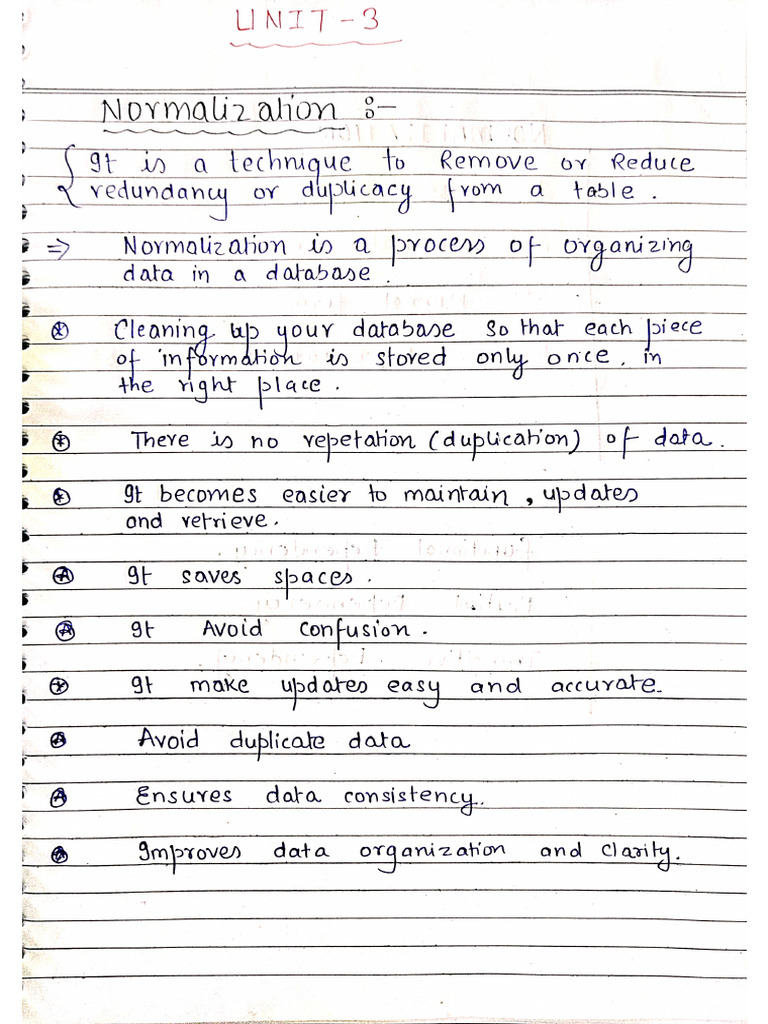 UNIT-3
Normalization :-
It is a technique to Remove or Reduce
redundancy or duplicacy from a table.
⇒ Normalization is a process of organizing
data in a database.
Cleaning up your database so that each piece
of information is stored only once. in
the right place.
There is no repetation (duplication) of data.
It becomes easier to maintain, updates
and retrieve.
It saves spaces.
It Avoid Confusion.
It make updates easy and accurate.
Avoid duplicate data
Ensures data consistency.
Improves data organization and Clarity.